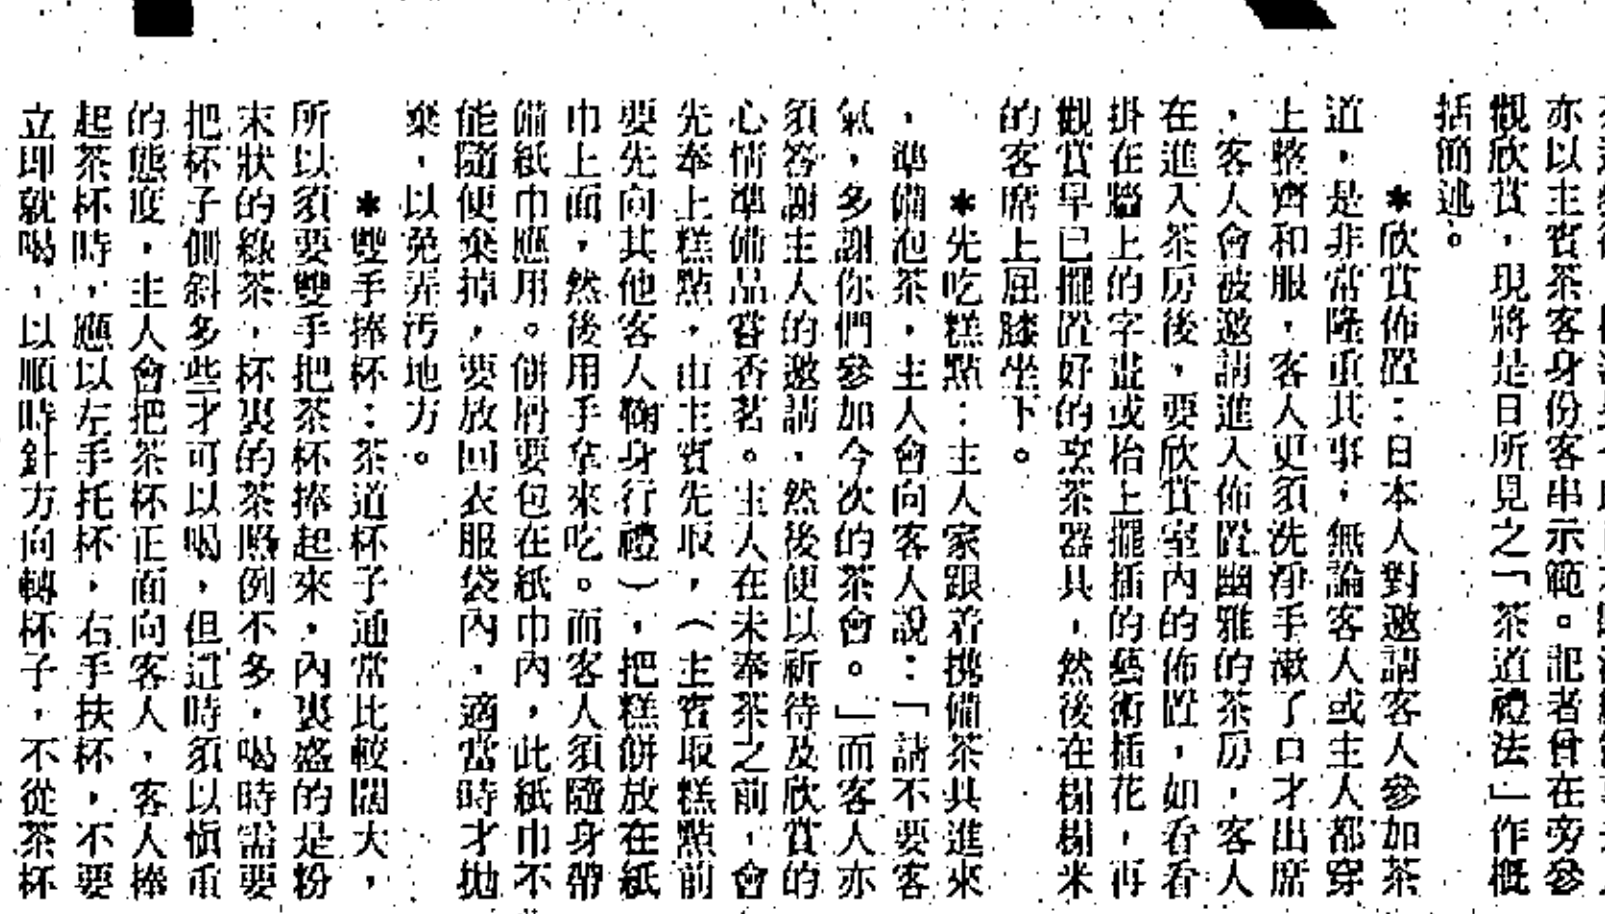 亦以主賓茶客身份客串示範。記者曾在旁參
觀欣賞,現將是日所見之「茶道禮法」作概
括簡述。
*欣賞佈置:日本人對邀請客人參加茶
道,是非常隆重其事,無論客人或主人都穿
上整齊和服,客人更須洗淨手漱了口才出席
,客人會被邀請進入佈置幽雅的茶房,客人
在進入茶房後,要欣賞室內的佈置,如看看
掛在牆上的字畫或枱上擺插的藝術插花,再
觀賞早已擺置好的烹茶器具,然後在榻榻米
的客席上屈膝坐下。
*先吃糕點:主人家跟着携備茶具進來
,準備泡茶,主人會向客人說:「請不要客
氣,多謝你們參加今次的茶會。」而客人亦
須答謝主人的邀請,然後便以祈待及欣賞的
心情準備品嘗香茗。主人在未奉茶之前,會
先奉上糕點,由主賓先取,(主賓取糕點前
要先向其他客人鞠身行禮),把糕餅放在紙
巾上面,然後用手拿來吃。而客人須隨身帶
備紙巾應用。餅屑要包在紙巾內,此紙巾不
能隨便棄掉,要放回衣服袋內,適當時才拋
棄,以免弄汚地方。
*雙手捧杯:茶道杯子通常比較闊大,
所以須要雙手把茶杯捧起來,內裏盛的是粉
末狀的綠茶,杯裏的茶照例不多,喝時需要
把杯子側斜多些才可以喝,但這時須以愼重
的態度,主人會把茶杯正面向客人,客人捧
起茶杯時,應以左手托杯,右手扶杯,不要
立即就喝,以順時針方向轉杯子,不從茶杯